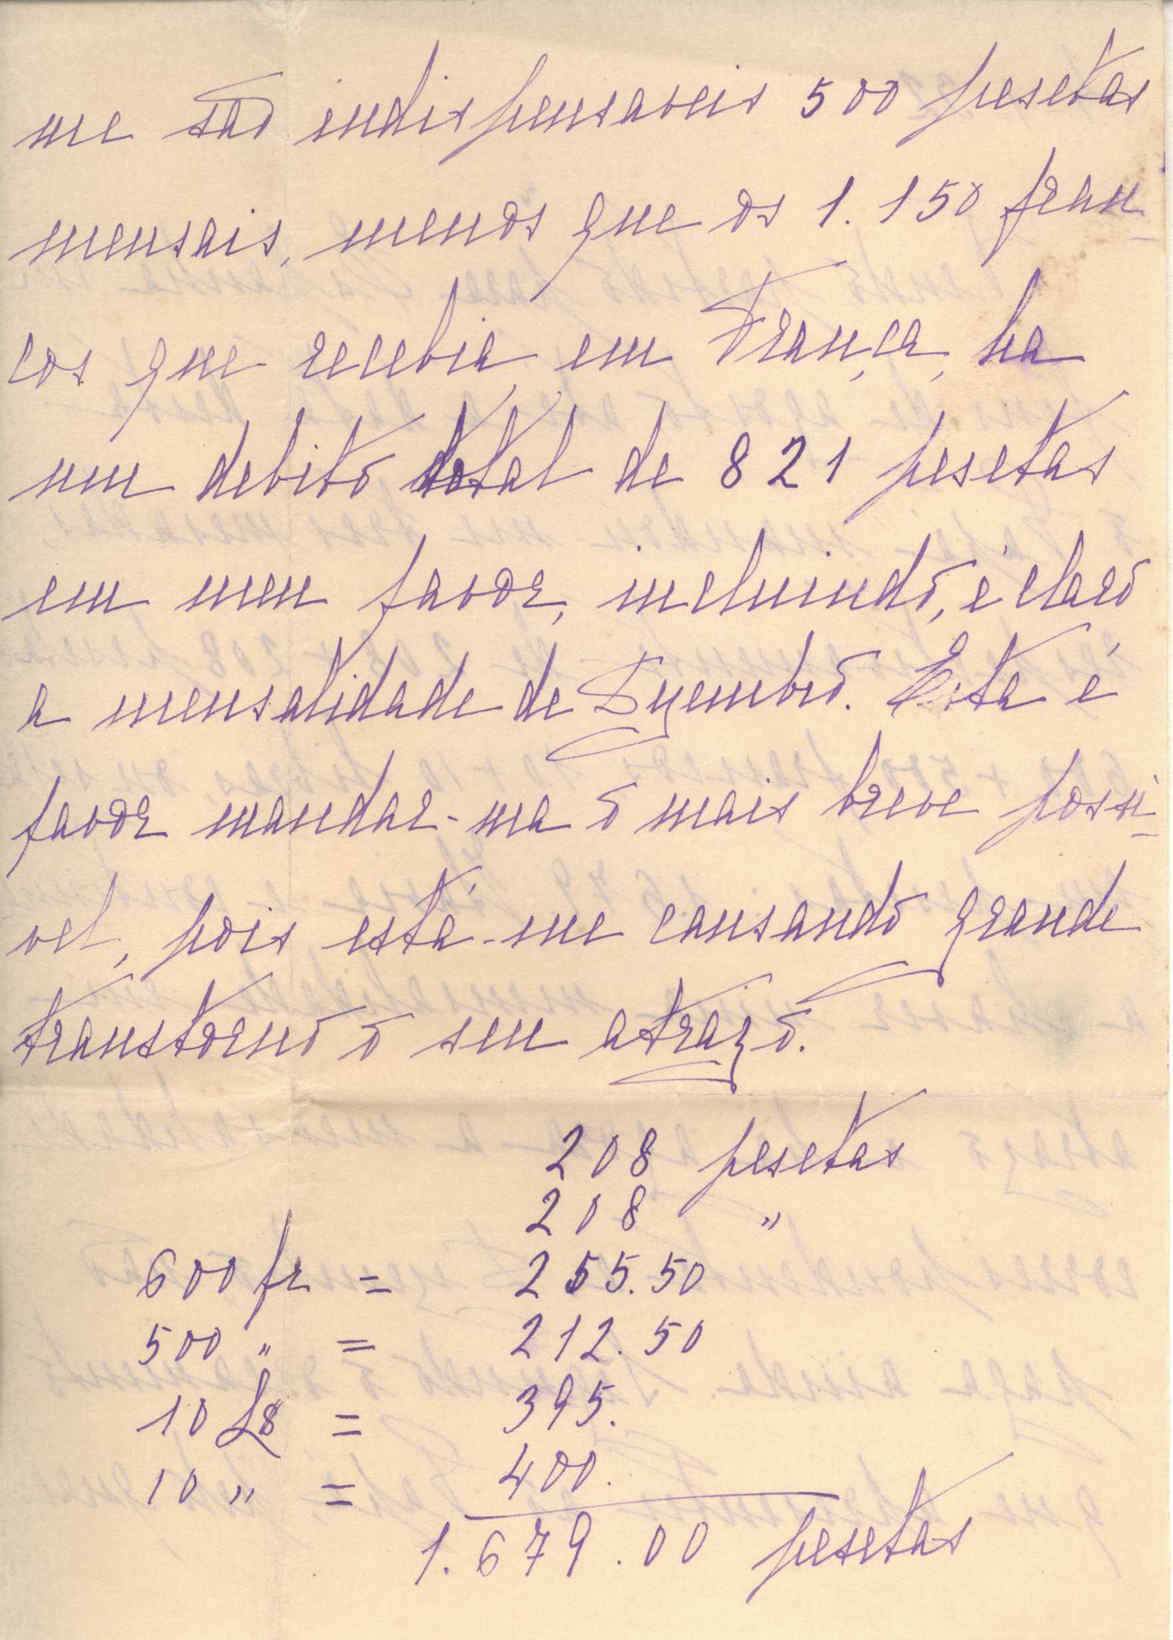 me são indispensaveis 500 pesetas
mensais, menos que os 1.150 fran-
cos que recebia em França, ha
um debito total de 821 pesetas
em meu favor, incluindo, é claro
a mensalidade de Dzembro. Esta é
favor mandar-ma o mais breve possi-
vel, pois está-me causando grande
transtorno o seu atrazo.
208 pesetas
208 "
600 fr = 255.50
500 " = 212.50
10 Ls = 395.
10 " = 400.
1.679.00 pesetas